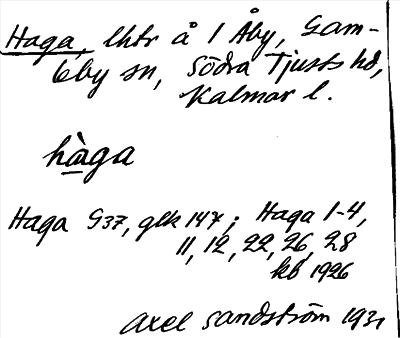 Haga, lhtr å 1 Åby, Gam-
leby sn, Södra Tjusts hd,
Kalmar l.
hàga
Haga G37, glk 147; Haga 1-4,
11, 12, 22, 26, 28
kb 1926
Axel Sandström 1931